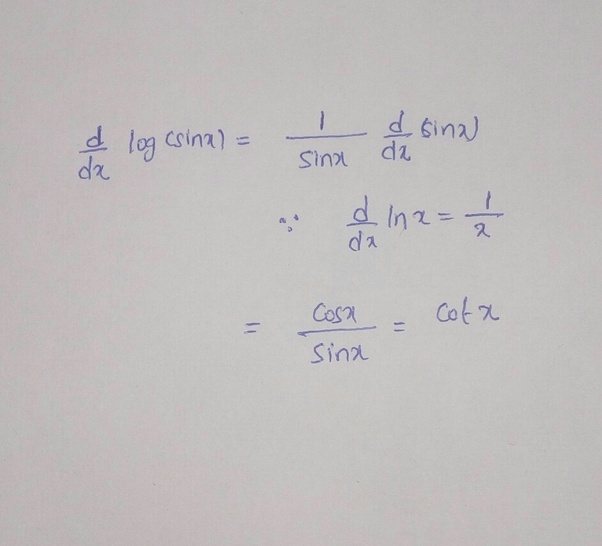 d/dx log (sinx) = 1/sinx d/dx (sinx)
∵ d/dx ln x = 1/x
= cosx/sinx = cot x